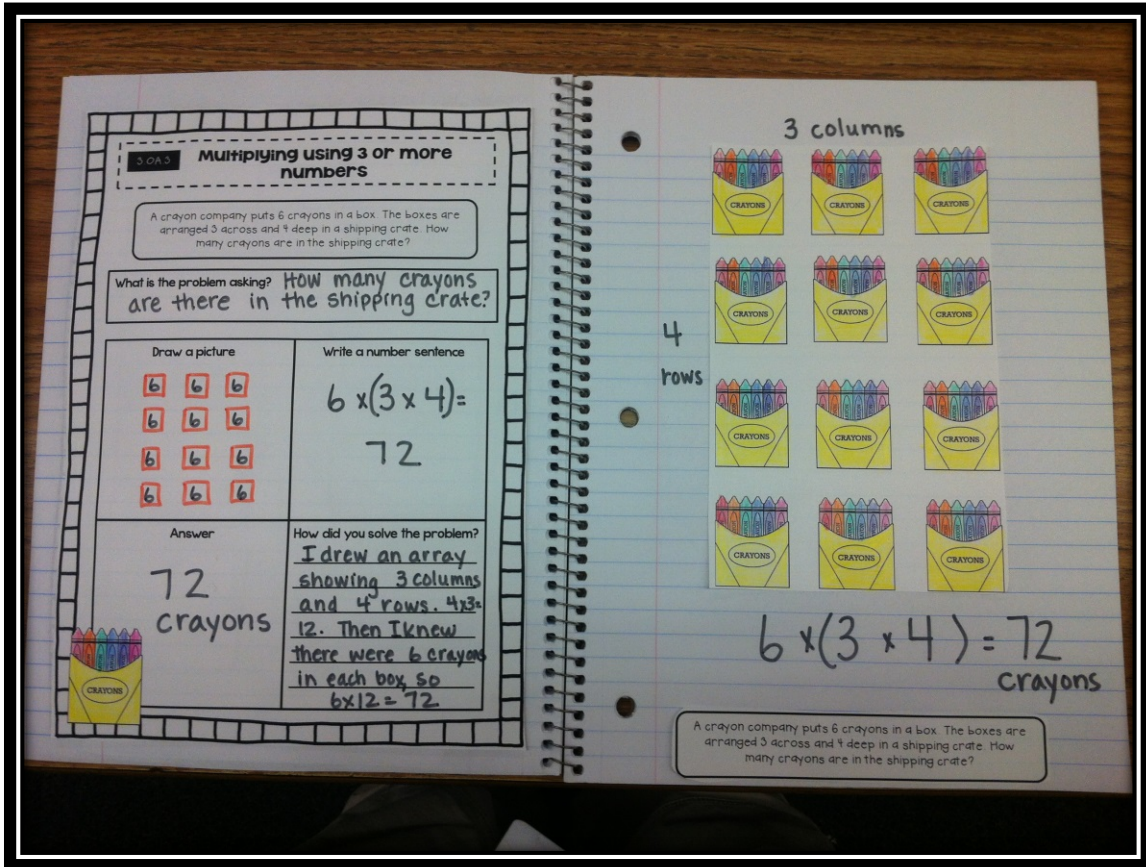 3.OA.3
Multiplying using 3 or more
numbers
A crayon company puts 6 crayons in a box. The boxes are
arranged 3 across and 4 deep in a shipping crate. How
many crayons are in the shipping crate?
What is the problem asking? How many crayons
are there in the shipping crate?
Draw a picture
6 6 6
6 6 6
6 6 6
6 6 6
Write a number sentence
6 x(3 x 4)=
72
Answer
72
crayons
CRAYONS
How did you solve the problem?
I drew an array
showing 3 columns
and 4 rows. 4x3=
12. Then I knew
there were 6 crayons
in each box, so
6x12=72
3 columns
CRAYONS CRAYONS CRAYONS
CRAYONS CRAYONS CRAYONS
4
rows
CRAYONS CRAYONS CRAYONS
CRAYONS CRAYONS CRAYONS
6 x(3 x 4) = 72
crayons
A crayon company puts 6 crayons in a box. The boxes are
arranged 3 across and 4 deep in a shipping crate. How
many crayons are in the shipping crate?